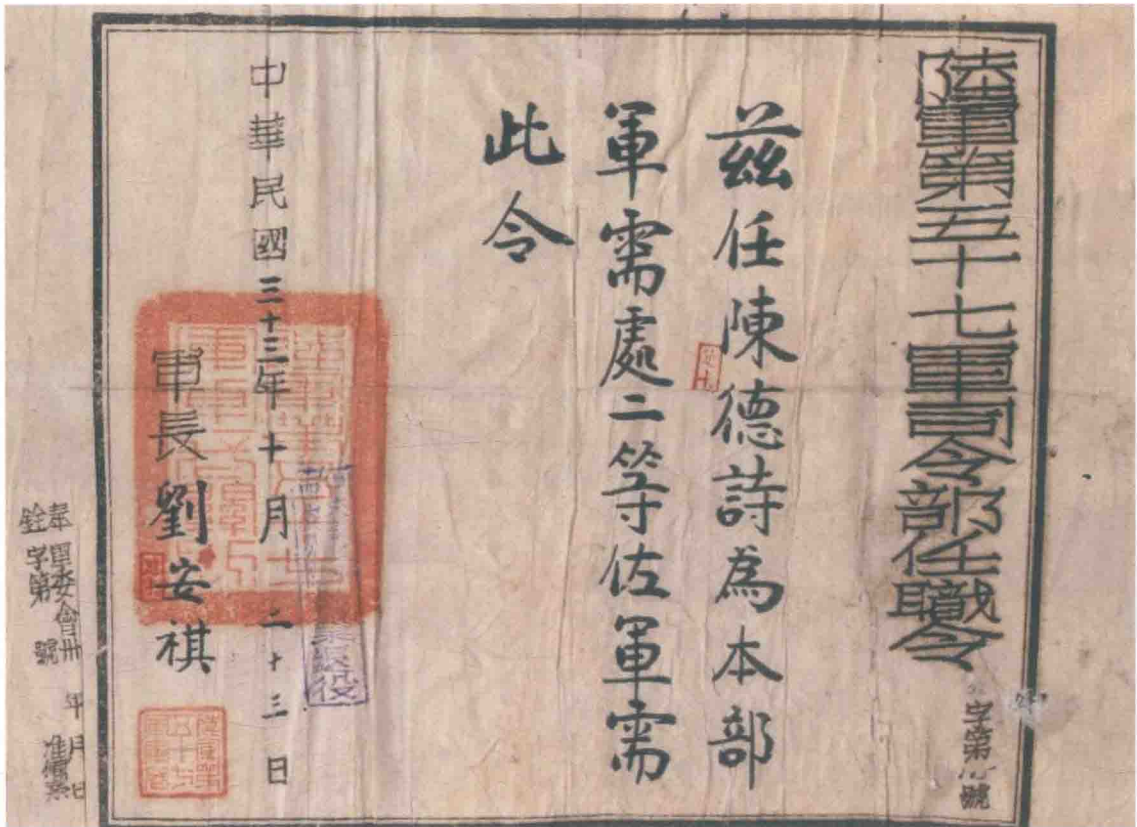 陸軍第五十七軍司令部任職令
字第 號
茲任陳德詩為本部
軍需處二等佐軍需
此令
中華民國三十三年十月二十三日
軍長劉安祺
奉軍委會卅 年 月 日
銓字第 號 准備案